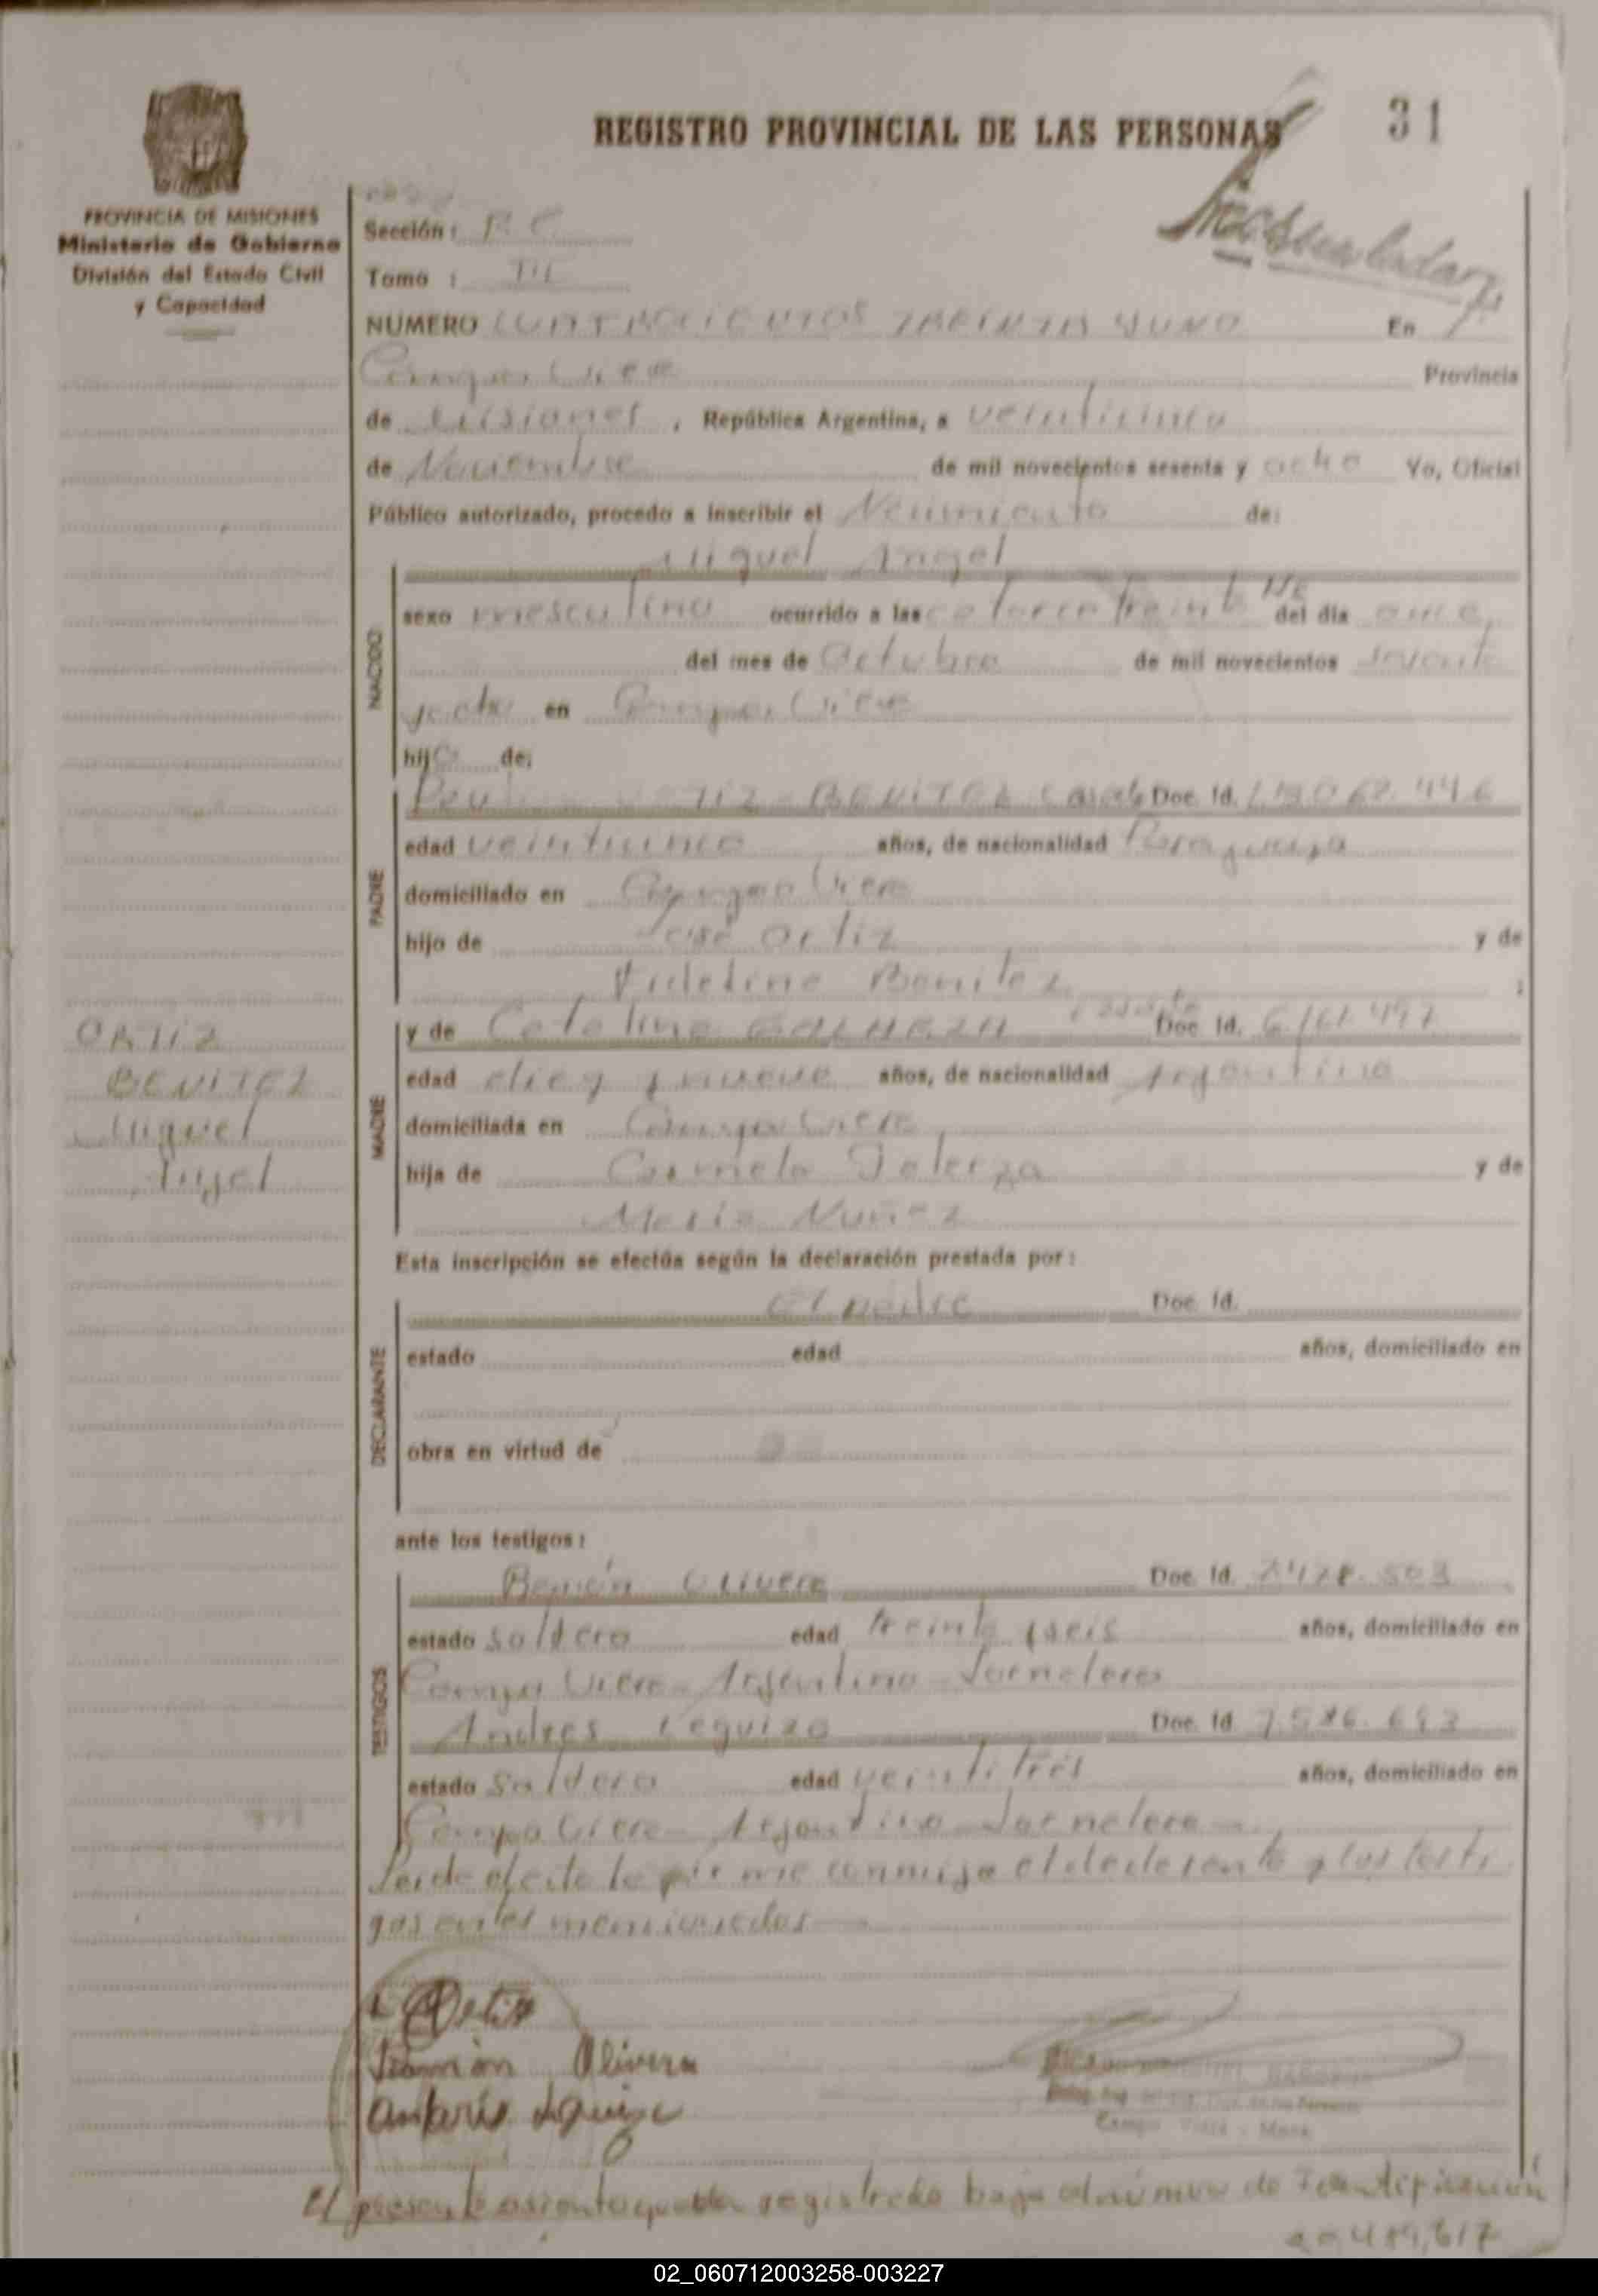 REGISTRO PROVINCIAL DE LAS PERSONAS
31
PROVINCIA DE MISIONES
Ministerio de Gobierno
División del Estado Civil
y Capacidad
Sección:
Tomo : III
NUMERO CUATROCIENTOS TREINTA Y UNO En
Campo Viera Provincia
de Misiones, República Argentina, a veinticinco
de Noviembre de mil novecientos sesenta y ocho Yo, Oficial
Público autorizado, procedo a inscribir el Nacimiento de:
Miguel Angel
sexo masculino ocurrido a las catorce treinta Hs del día once
del mes de Octubre de mil novecientos sesenta
y ocho en Campo Viera
hijo de:
TIZ BENITEZ casado Doc. Id.
edad veinticinco años, de nacionalidad Paraguaya
domiciliado en Campo Viera
hijo de José Ortiz y de
Fidelina Benitez ;
y de Catalina GALARZA casada Doc. Id.
edad diez y nueve años, de nacionalidad Argentina
domiciliada en Campo Viera
hija de Carmelo Galarza y de
Maria Nuñez
Esta inscripción se efectúa según la declaración prestada por:
El padre Doc. Id.
estado edad años, domiciliado en
obra en virtud de
ante los testigos:
Ramón Olivera Doc. Id. 7478.503
estado soltero edad treinta y seis años, domiciliado en
Campo Viera - Argentino - Jornalero
Andres Leguiza Doc. Id. 7.586.693
estado soltero edad veintitrés años, domiciliado en
Campo Viera - Argentino - Jornalero
Leida el acta la firma conmigo el declarante y los testi
gos antes mencionados
NACIDO
PADRE
MADRE
DECLARANTE
TESTIGOS
ORTIZ
BENITEZ
Miguel
Angel
Ortiz
Ramón Olivera
Campo Viera - Mnes.
El presente asiento queda registrado bajo el número de Identificación
02_060712003258-003227